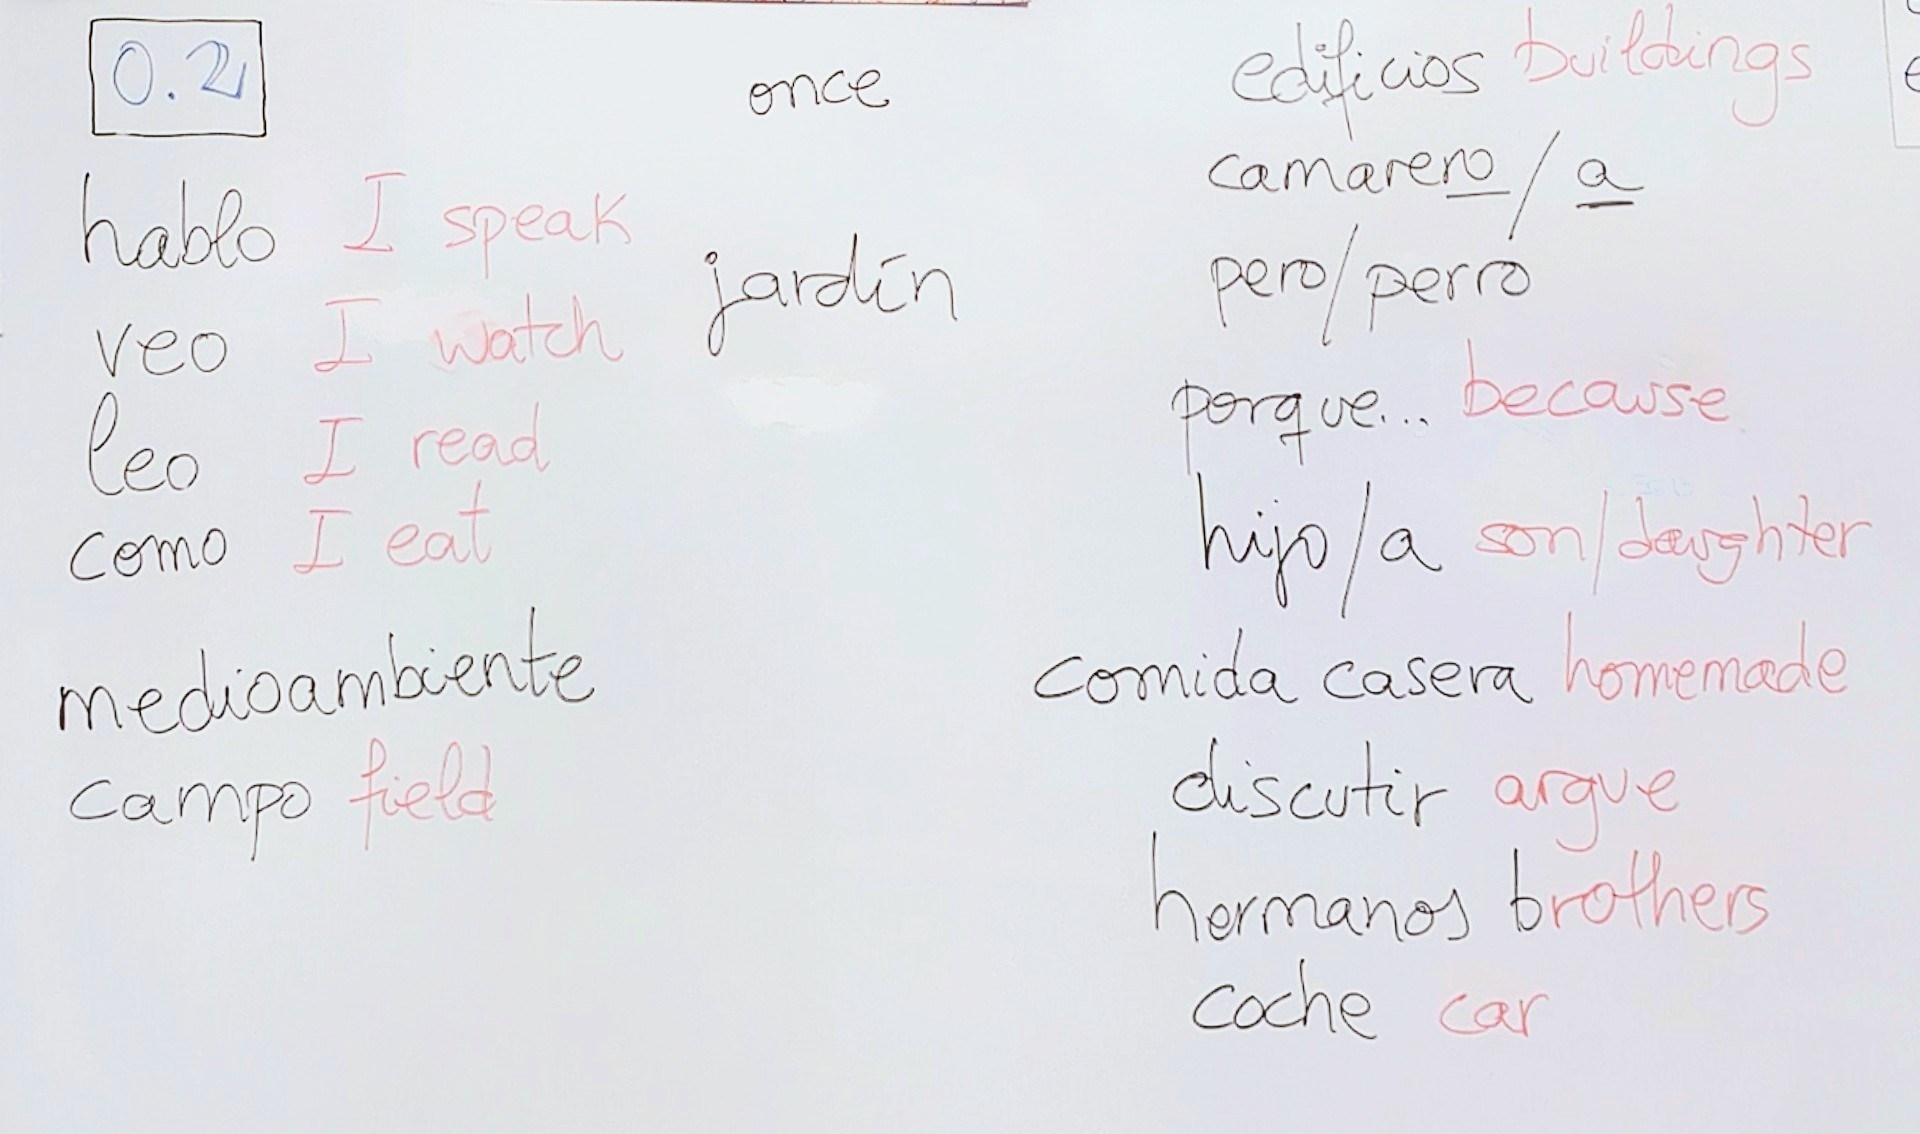 0.2
hablo I speak
veo I watch
leo I read
como I eat
medioambiente
campo field
once
jardín
edificios buildings
camarero/a
pero/perro
porque... because
hijo/a son/daughter
comida casera homemade
discutir argue
hermanos brothers
coche car